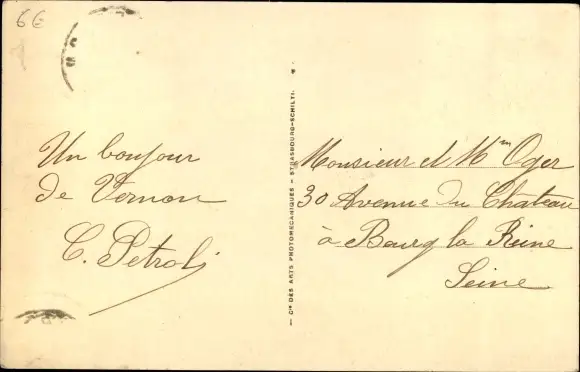 66
Un bonjour
de Vernon
C. Petrali
Cie DES ARTS PHOTOMECANIQUES - STRASBOURG-SCHILTI.
Monsieur et Mme Oger
30 Avenue du Chateau
à Bourg la Reine
Seine